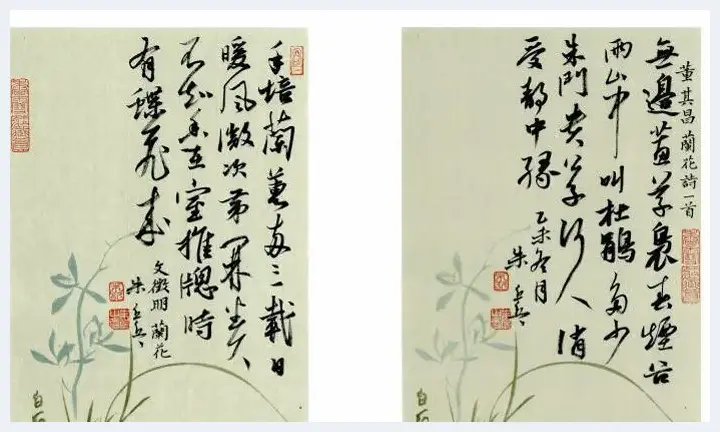 董其昌蘭花詩一首
無邊蕙草裊春煙谷
雨山中叫杜鵑多少
朱門貴公子何人消
受靜中緣
乙未冬月
朱
手培蘭蕙兩三載日
暖風微次第開坐久
不知香在室推牕時
有蝶飛來
文徵明蘭花
朱